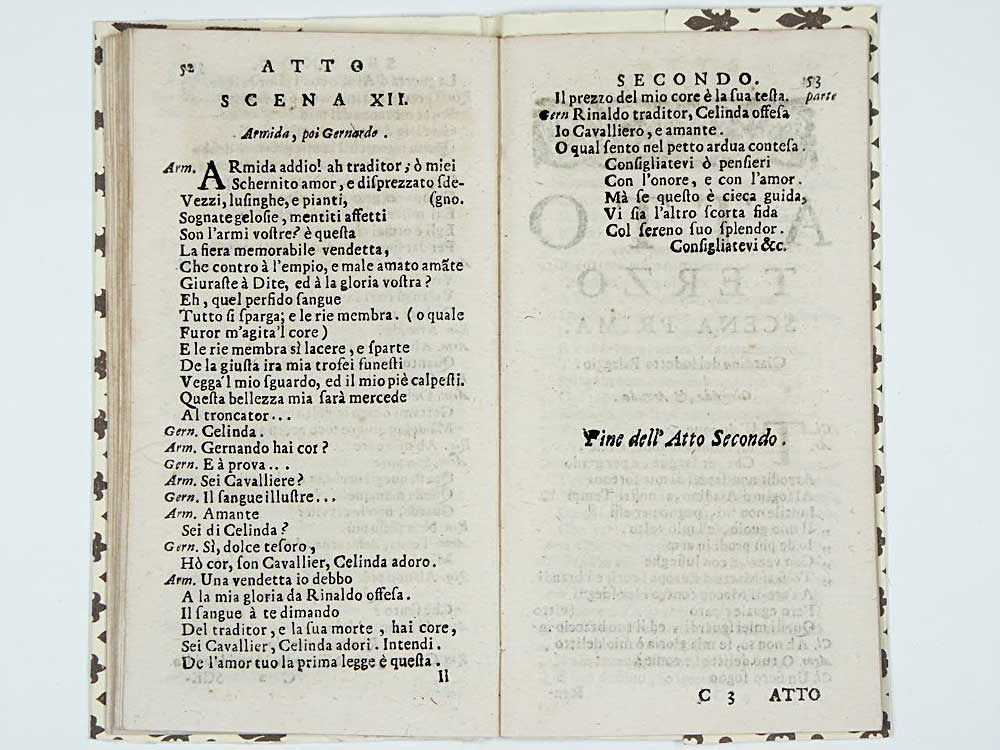 52 ATTO
SCENA XII.
Armida, poi Gernardo.
Arm. ARmida addio! ah traditor; ò miei
Schernito amor, e disprezzato sde-
Vezzi, lusinghe, e pianti, (gno.
Sognate gelosie, mentiti affetti
Son l'armi vostre? è questa
La fiera memorabile vendetta,
Che contro à l'empio, e male amato amãte
Giuraste à Dite, ed à la gloria vostra?
Eh, quel perfido sangue
Tutto si sparga; e le rie membra. (o quale
Furor m'agita'l core)
E le rie membra sì lacere, e sparte
De la giusta ira mia trofei funesti
Vegga'l mio sguardo, ed il mio piè calpesti.
Questa bellezza mia sarà mercede
Al troncator...
Gern. Celinda.
Arm. Gernando hai cor?
Gern. E à prova...
Arm. Sei Cavalliere?
Gern. Il sangue illustre...
Arm. Amante
Sei di Celinda?
Gern. Sì, dolce tesoro,
Hò cor, son Cavallier, Celinda adoro.
Arm. Una vendetta io debbo
A la mia gloria da Rinaldo offesa.
Il sangue à te dimando
Del traditor, e la sua morte, hai core,
Sei Cavallier, Celinda adori. Intendi.
De l'amor tuo la prima legge è questa.
Il
SECONDO. 53
Il prezzo del mio core è la sua testa. parte
Gern Rinaldo traditor, Celinda offesa
Io Cavalliero, e amante.
O qual sento nel petto ardua contesa.
Consigliatevi ò pensieri
Con l'onore, e con l'amor.
Mà se questo è cieca guida,
Vi sia l'altro scorta fida
Col sereno suo splendor.
Consigliatevi &c.
Fine dell'Atto Secondo.
C 3 ATTO